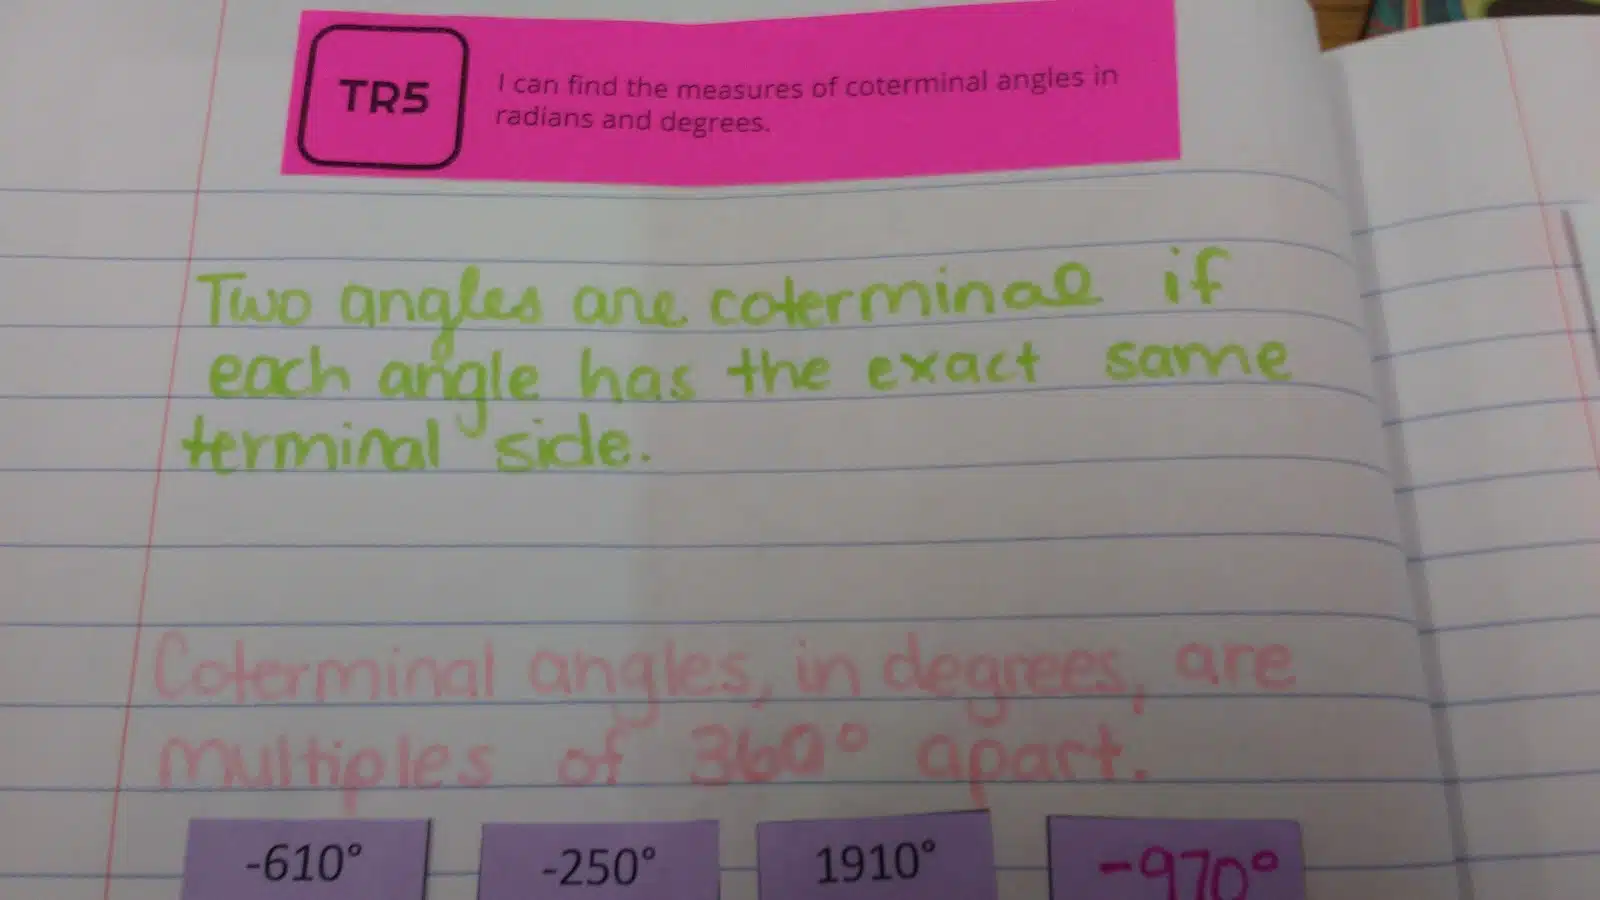 TR5
I can find the measures of coterminal angles in
radians and degrees.
Two angles are coterminal if
each angle has the exact same
terminal side.
Coterminal angles, in degrees, are
multiples of 360° apart.
-610° -250° 1910° -970°